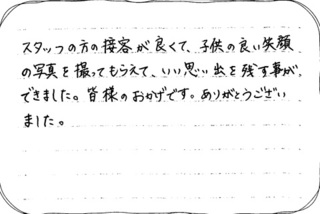 スタッフの方の接客が良くて、子供の良い笑顔
の写真を撮ってもらえて、いい思い出を残す事が
できました。皆様のおかげです。ありがとうござい
ました。